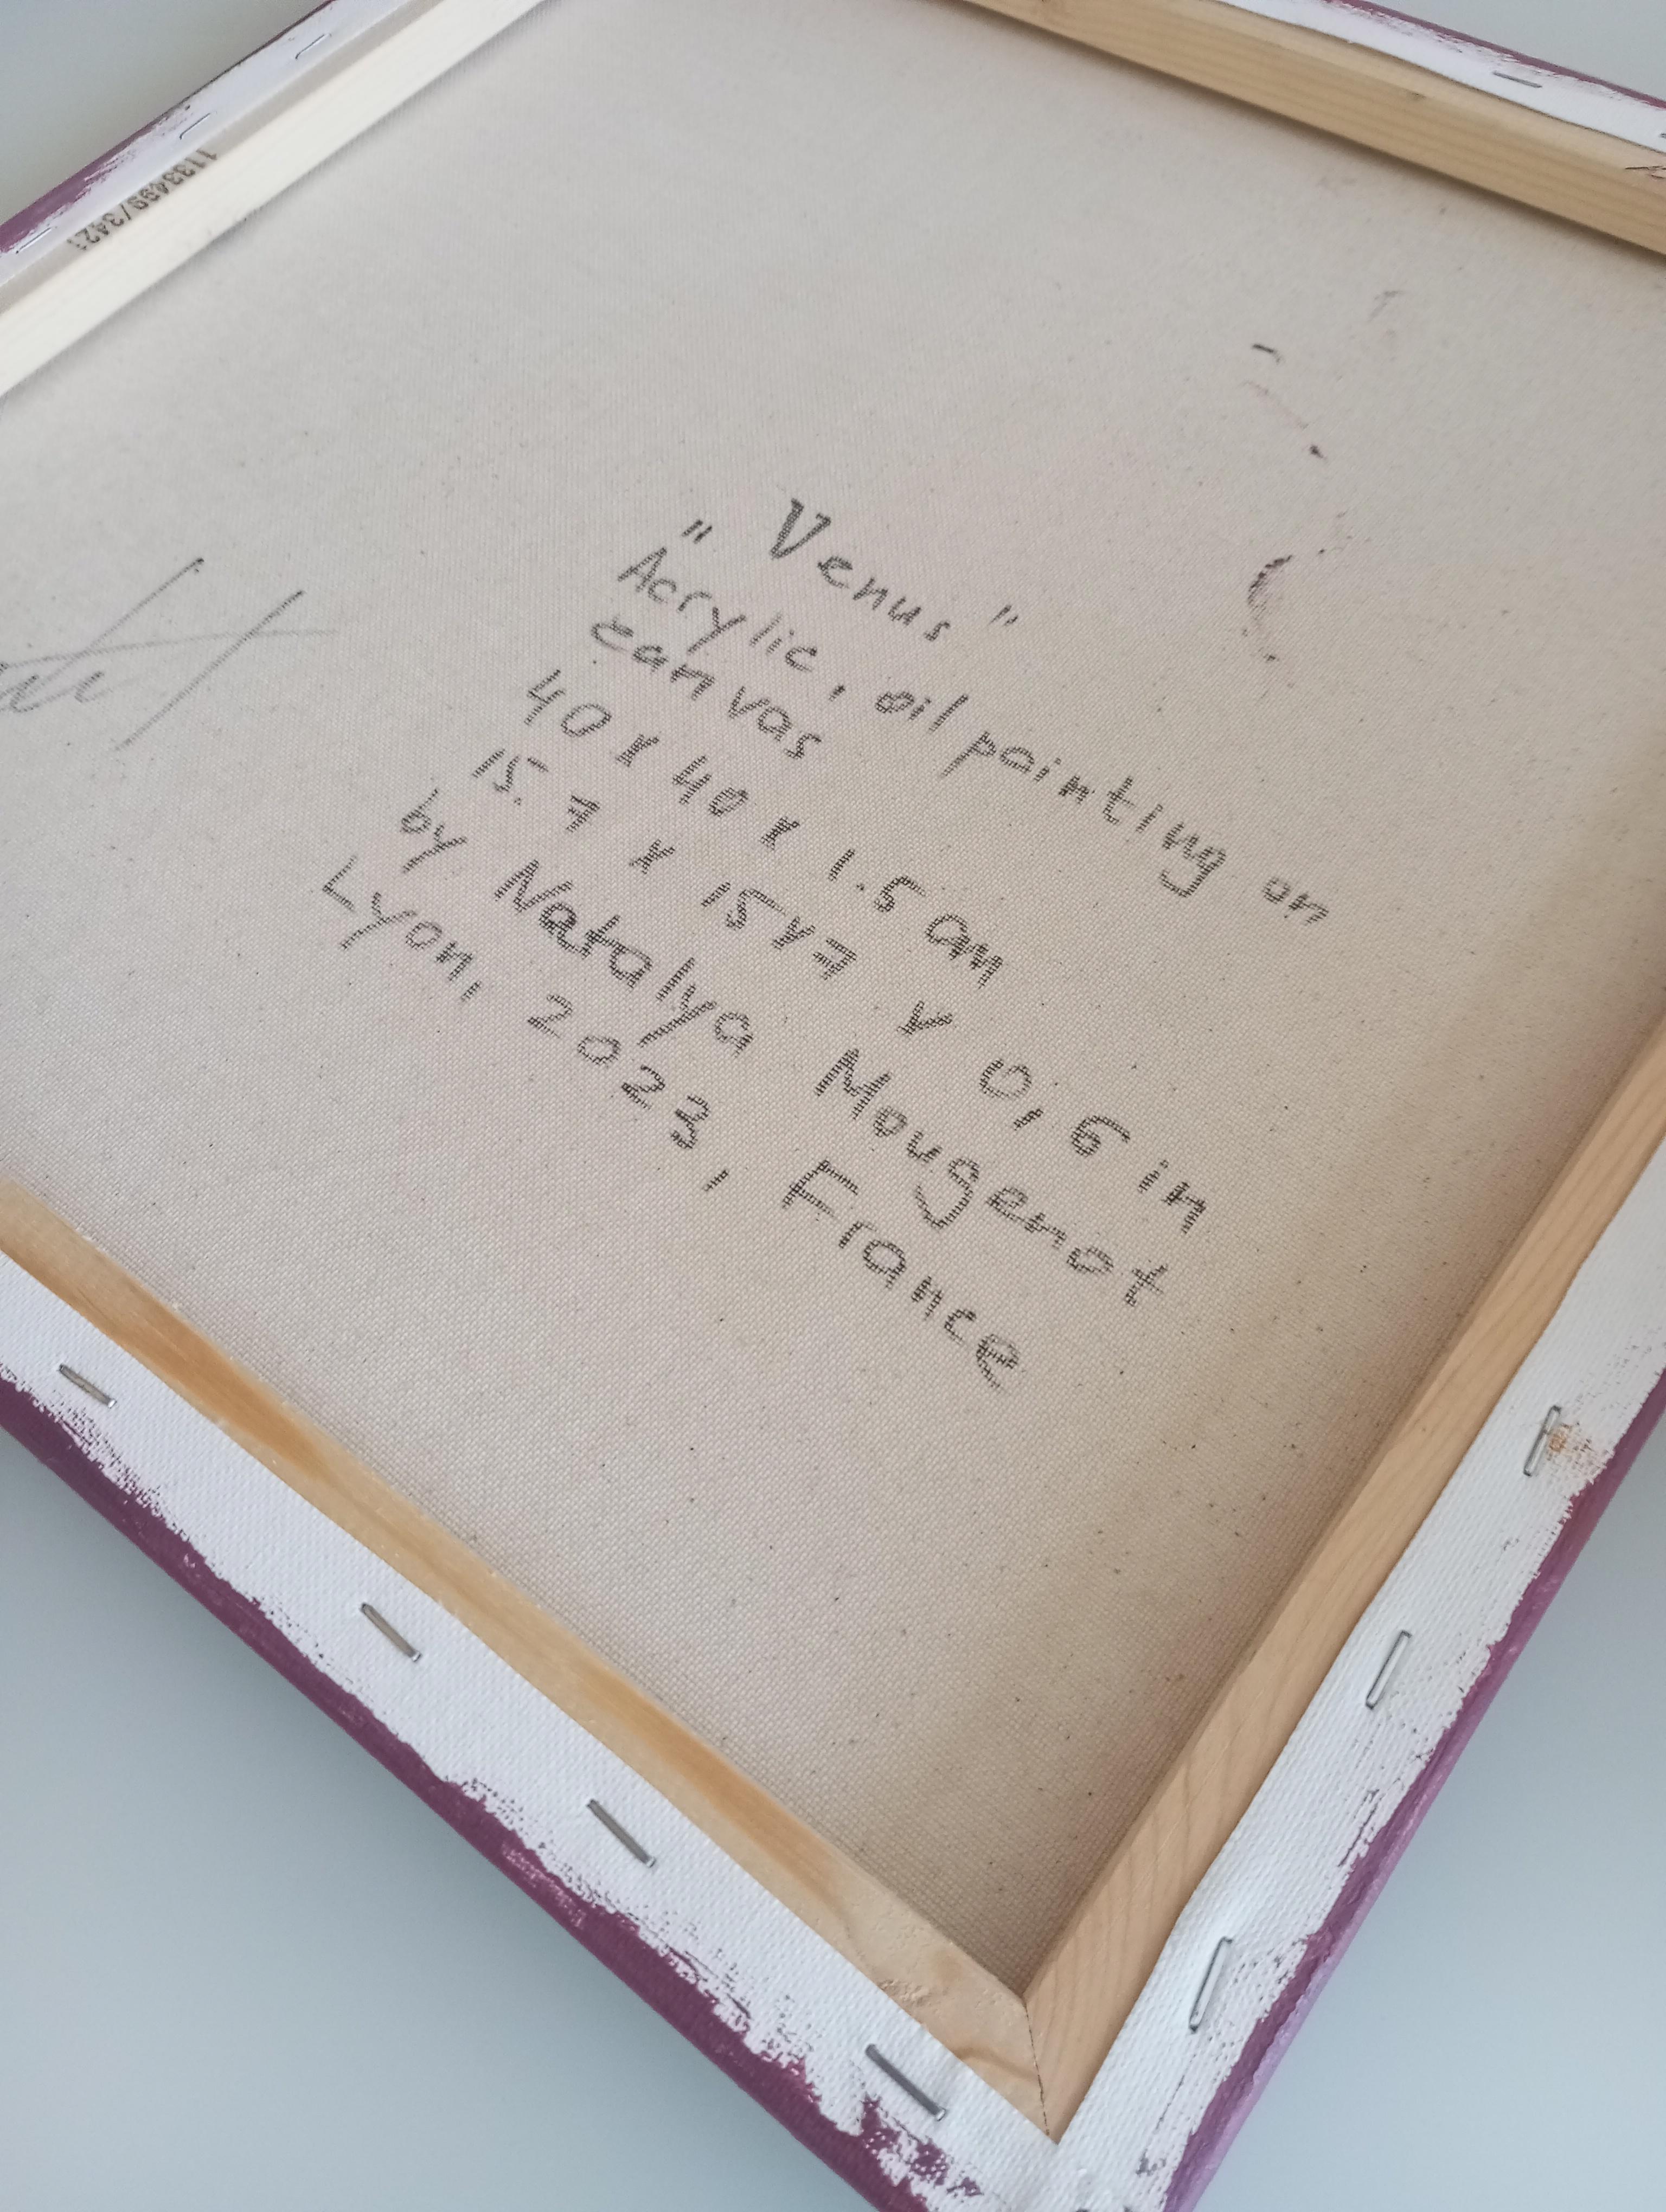 1133499/3421
" Venus "
Acrylic, oil painting on
canvas
40 x 40 x 1.5 cm
15.7 x 15,7 x 0,6 in
by Natalya Mougenot
Lyon, 2023, France